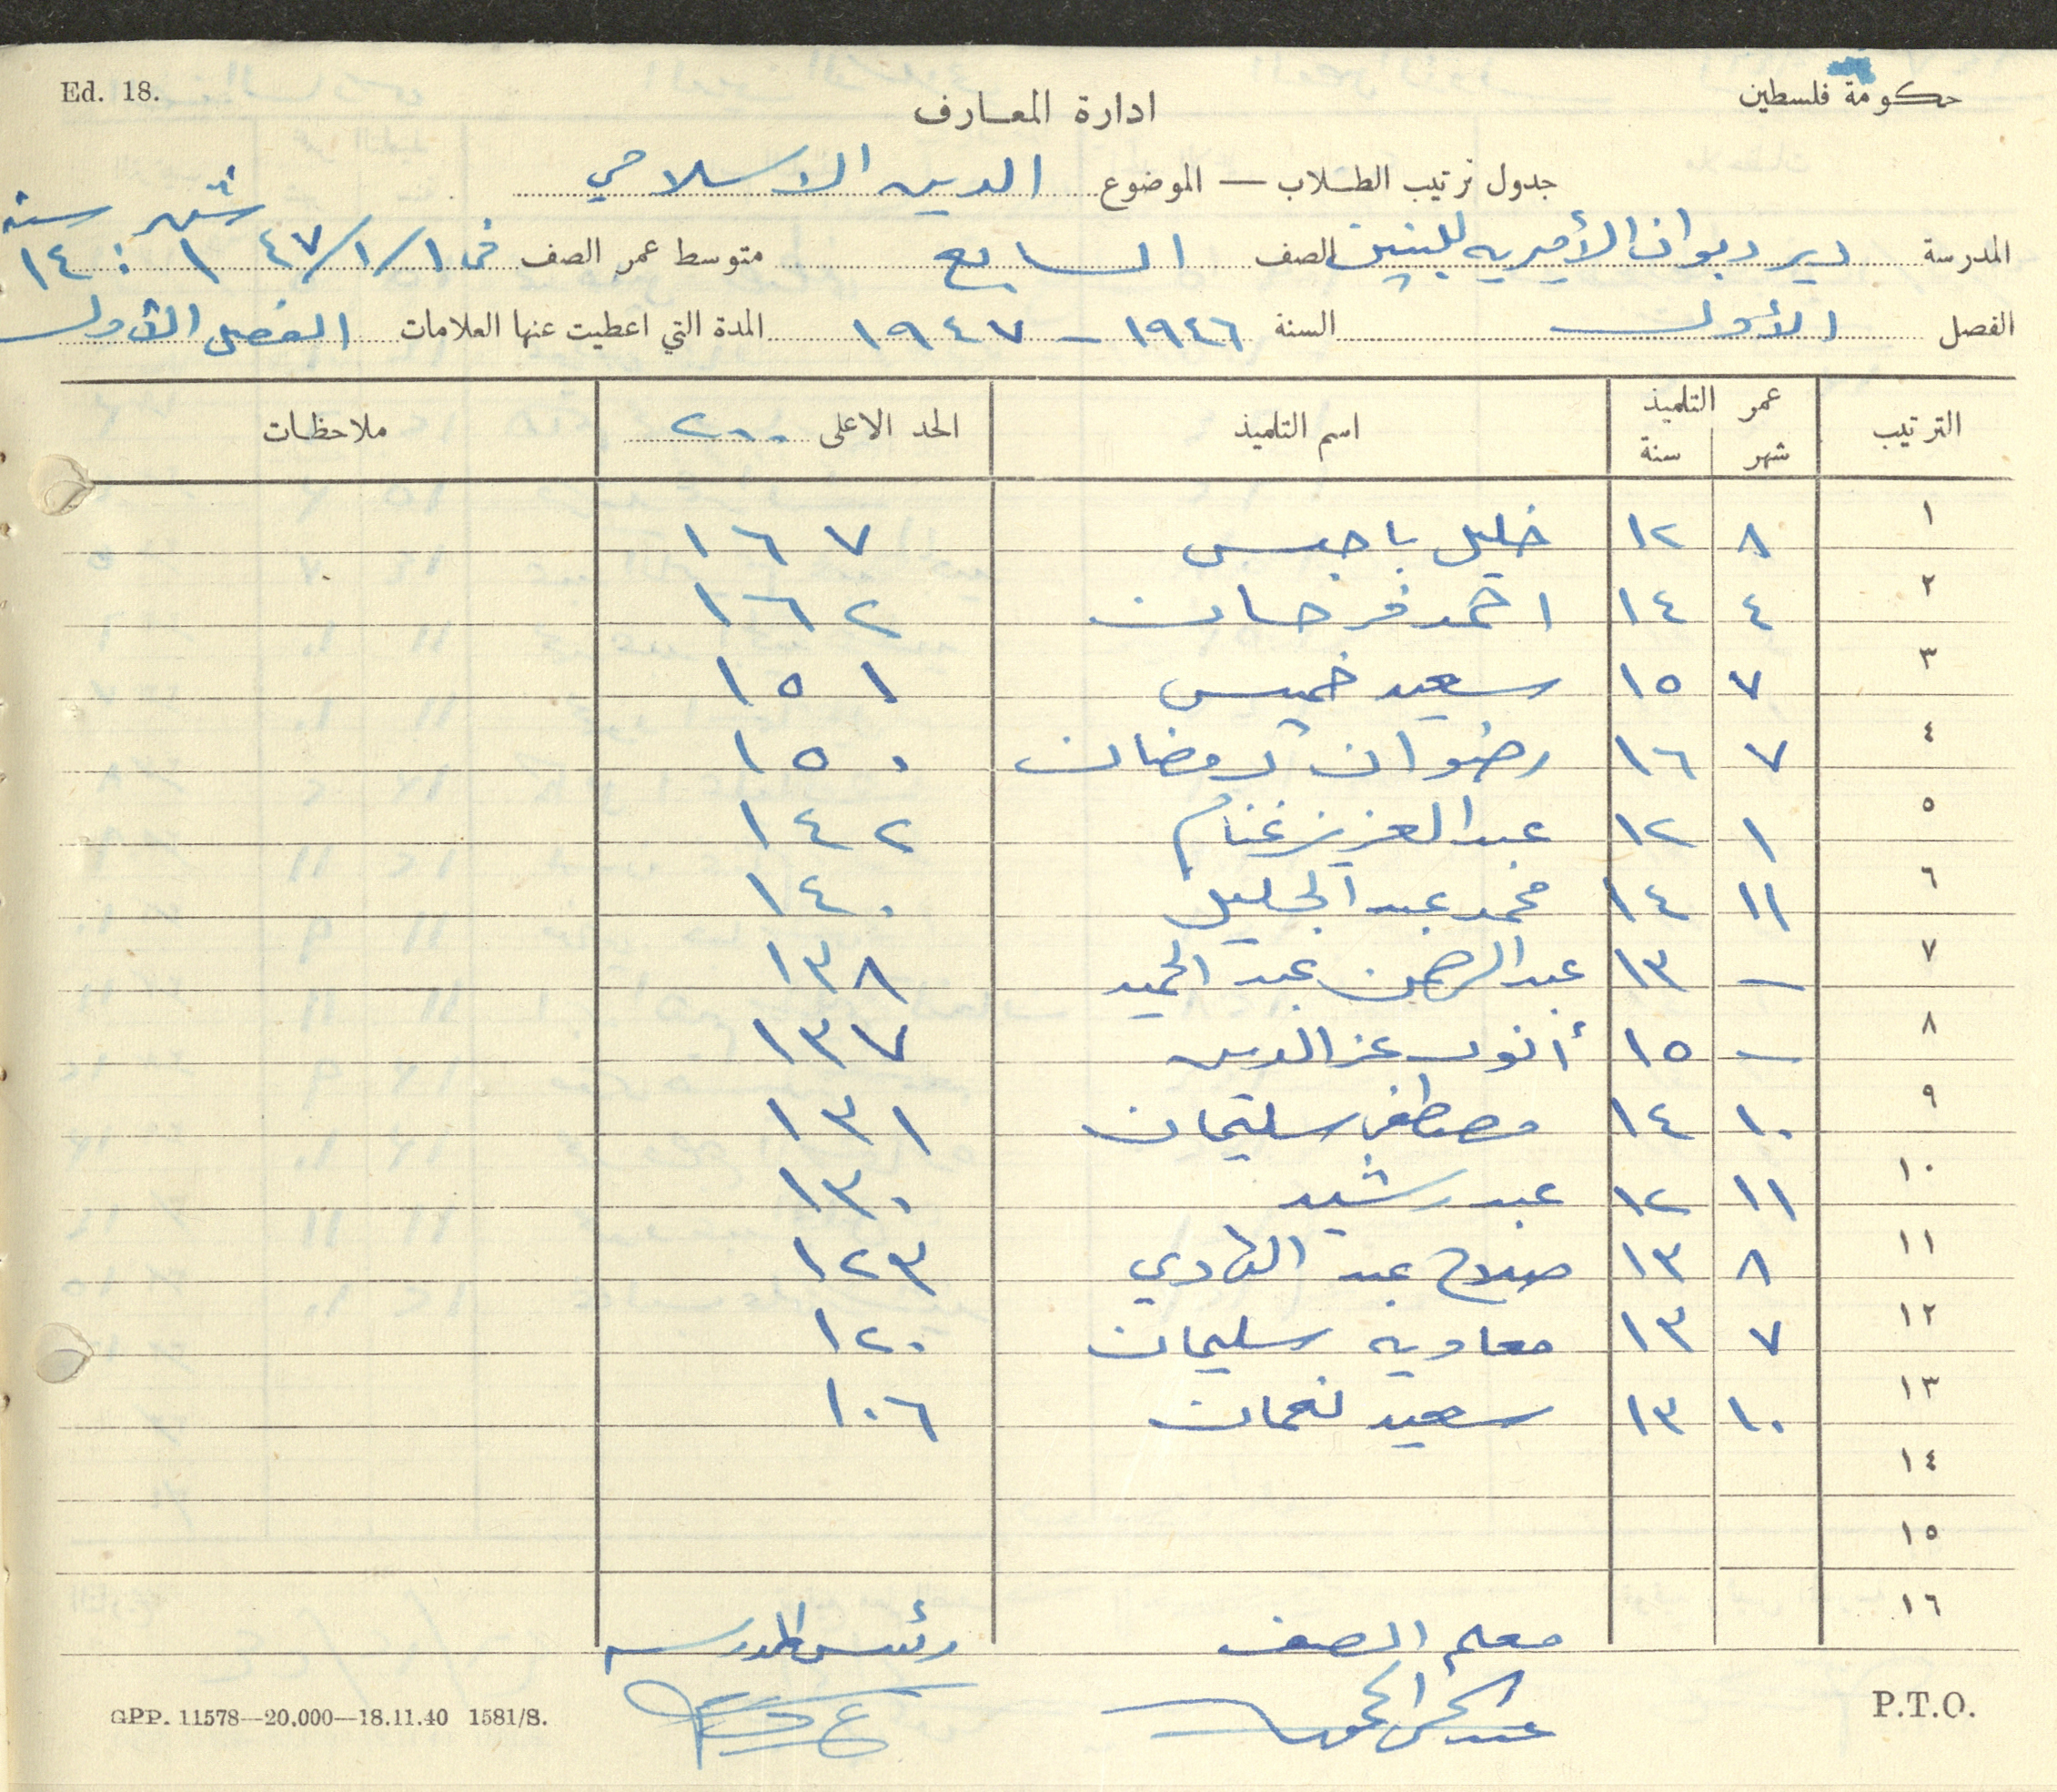 Ed. 18.
حكومة فلسطين
ادارة المعارف
جدول ترتيب الطلاب — الموضوع الدين الاسلامي
المدرسة دير ديوان الأميريه للبنين الصف السابع متوسط عمر الصف في ١/١/٤٧ ١ شهر : ١٤ سنه
الفصل الأول السنة ١٩٤٦ - ١٩٤٧ المدة التي اعطيت عنها العلامات الفصل الأول
الترتيب عمر التلميذ اسم التلميذ الحد الاعلى ٢٠٠ ملاحظات
شهر سنة
١ ٨ ١٢ خليل باجس ١٦٧
٢ ٤ ١٤ احمد فرحان ١٦٢
٣ ٧ ١٥ سعيد خميس ١٥١
٤ ٧ ١٦ رضوان رمضان ١٥٠
٥ ١ ١٢ عبد العزيز غنام ١٤٢
٦ ١١ ١٤ محمد عبد الجليل ١٤٠
٧ — ١٣ عبد الرحمن عبد الحميد ١٣٨
٨ — ١٥ أنور عز الدين ١٣٧
٩ ١٠ ١٤ مصطفى سليمان ١٣١
١٠ ١١ ١٢ عبد رشيد ١٣٠
١١ ٨ ١٣ صلاح عبد الهادي ١٢٣
١٢ ٧ ١٣ معاويه سليمان ١٢٠
١٣ ١٠ ١٣ سعيد نعمان ١٠٦
١٤
١٥
١٦
معلم الصف رئيس المدرسه
P.T.O.
GPP. 11578—20,000—18.11.40 1581/S.